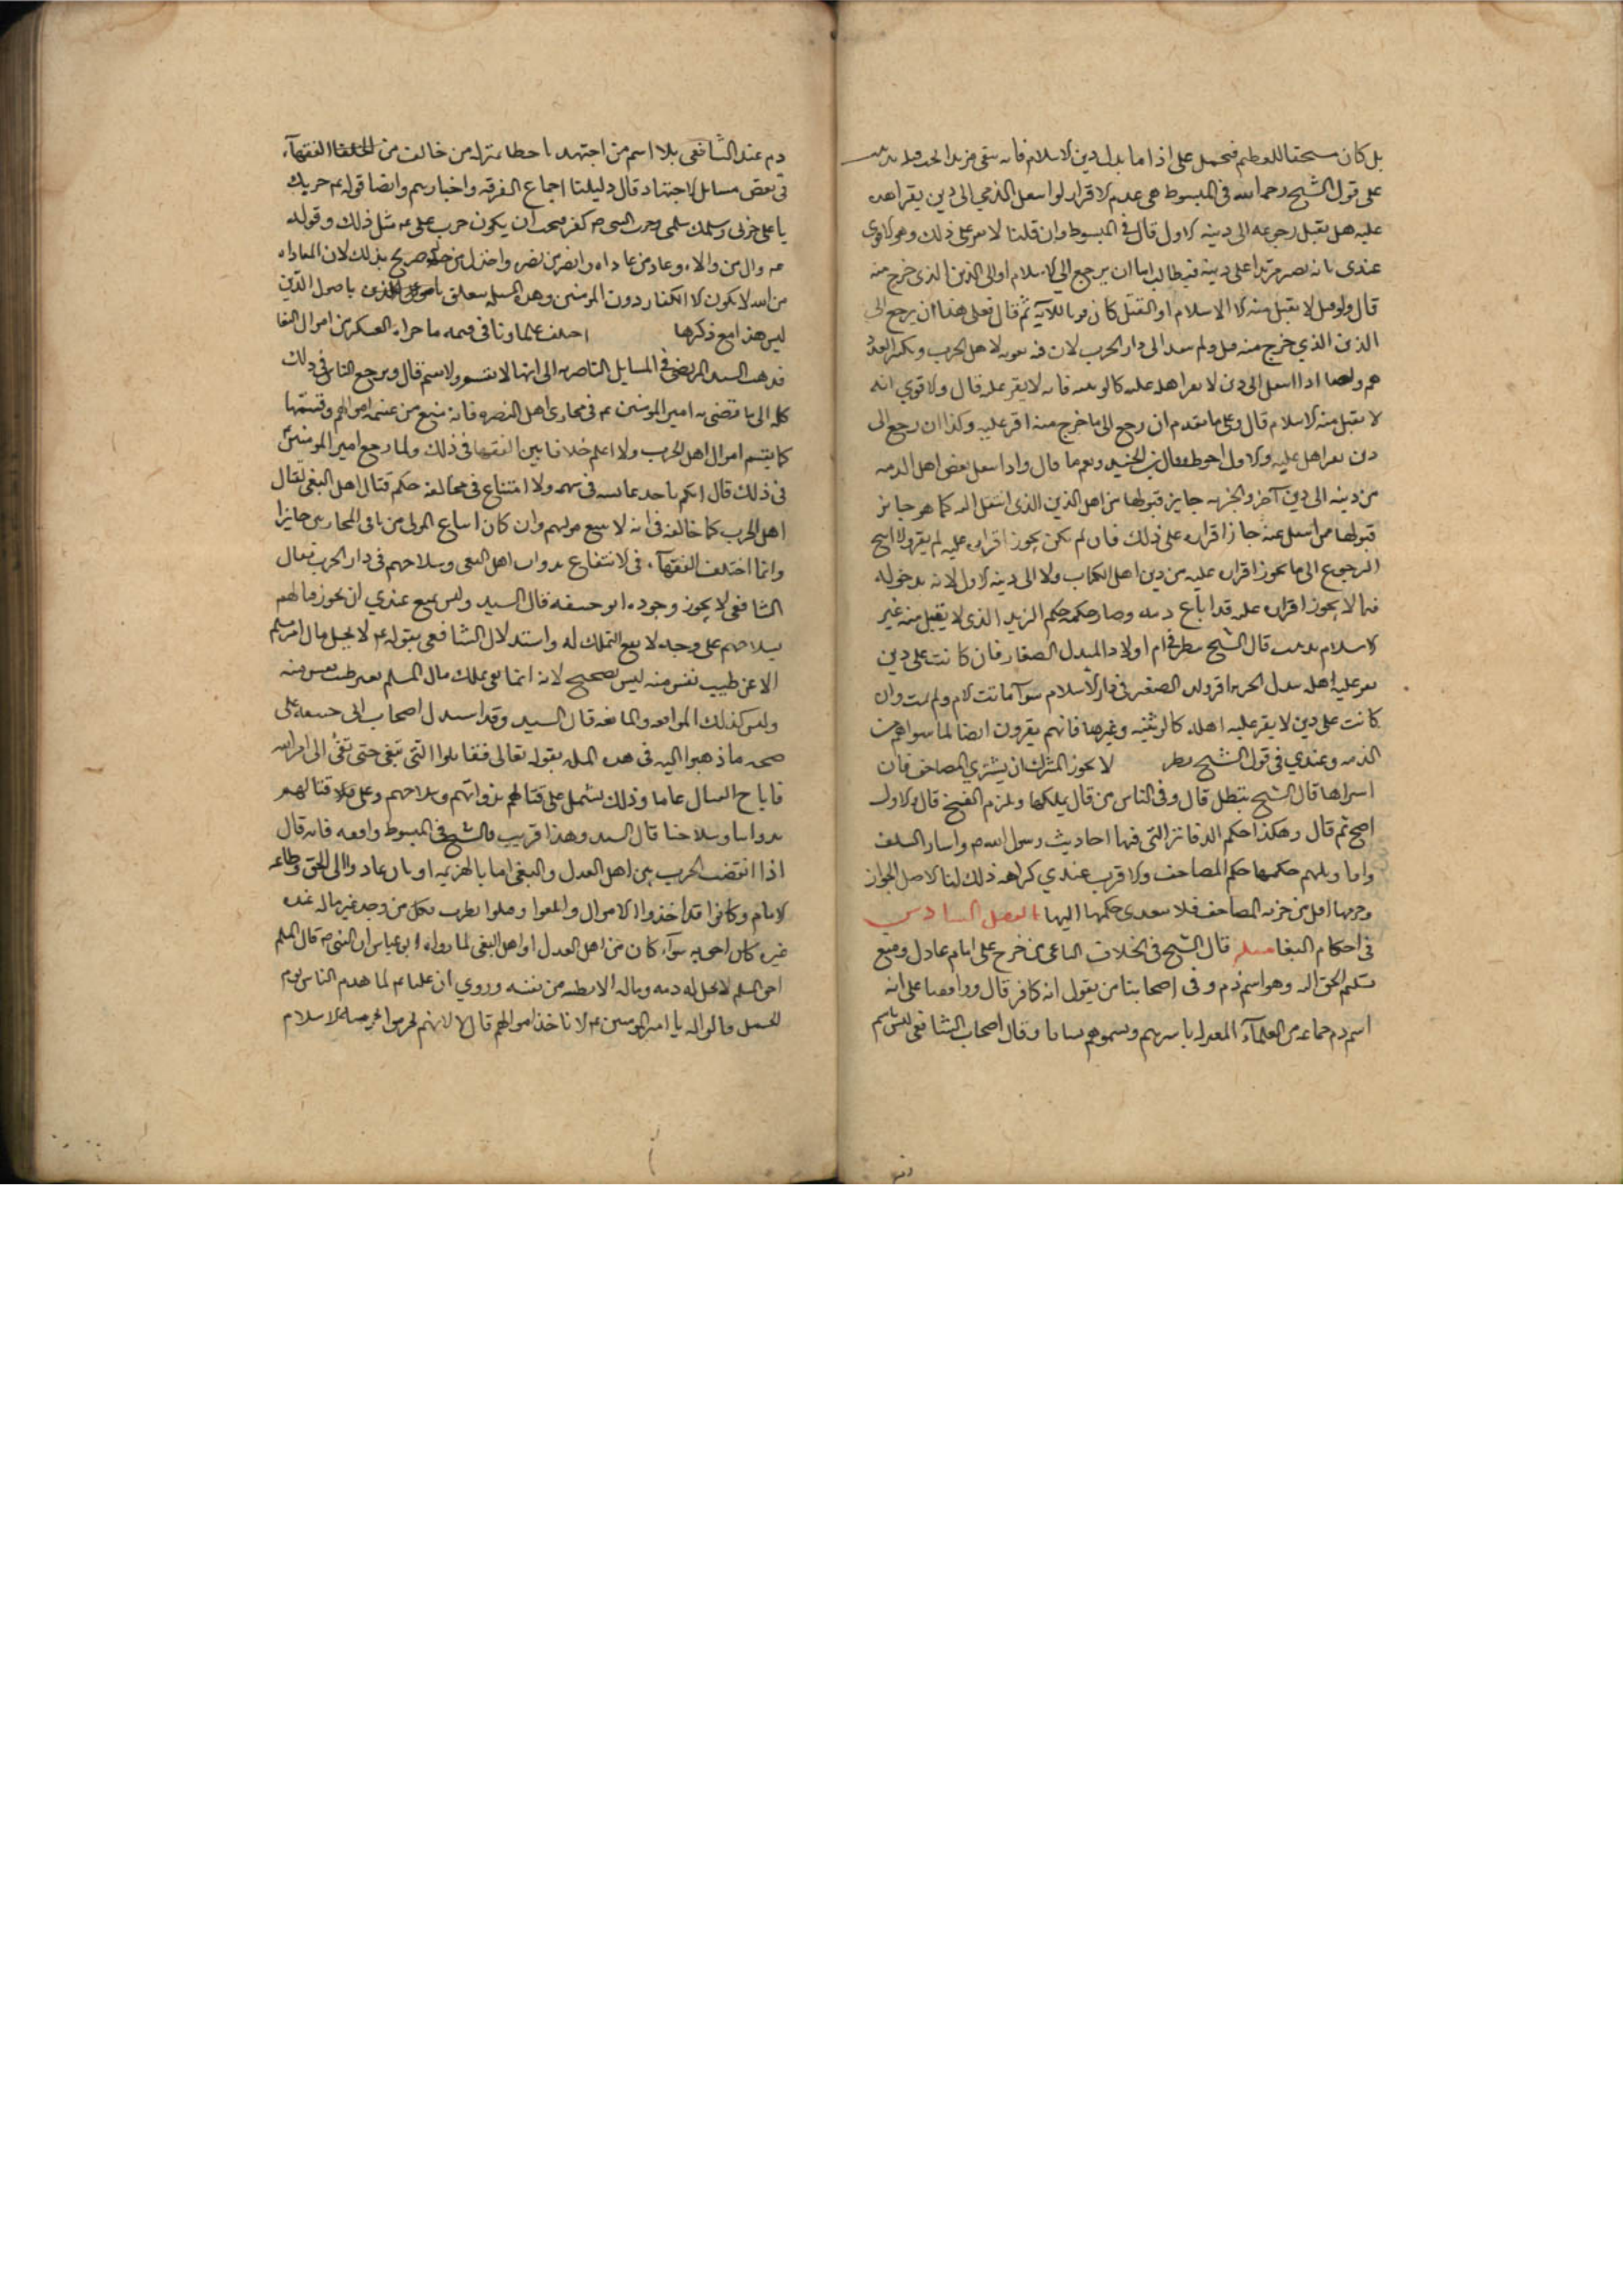 بل كان مستحقا للعظيم فيحمل على اذا ما بدل دين الاسلام فانه
على قول الشيخ رحمه الله في المبسوط هي عدم الاقرار لو اسعل الذمي الى دين يقر اهله
عليه هل يقبل رجوعه الى دينه الاول قال في المبسوط وان قلنا لا يقر على ذلك وهو الاقوى
عندي بانه يصير مرتدا على دينه فيطالب اما ان يرجع الى الاسلام او الى الدين الذي خرج منه
قال ولو قيل لا يقبل منه الا الاسلام او القتل كان قويا للاية ثم قال فعلى هذا ان يرجع الى
الدين الذي خرج منه قيل ولم ينفذ الى دار الحرب لان فيه تقوية لاهل الحرب وتكثير العدد
هم واما اذا انتقل الى دين لا يقر اهله عليه كالوثنية فانه لا يقر عليه قال والاقوى انه
لا يقبل منه الا الاسلام قال وعلى ما تقدم ان رجع الى ما خرج منه اقر عليه وكذا ان رجع الى
دين يقر اهله عليه والاول احوط وقال ابن الجنيد ونعم ما قال واذا انتقل بعض اهل الذمة
من دينه الى دين آخر والجزية جايز قبولها من اهل الدين الذي انتقل اليه كما هو جايز
قبولها ممن انتقل عنه جاز اقراره على ذلك فان لم يكن يجوز اقراره عليه لم يقر ولا ابيح
الرجوع الى ما يجوز اقراره عليه من دين اهل الكتاب ولا الى دينه الاول لانه بدخوله
فيما لا يجوز اقراره عليه قد اباح دمه وصار حكمه حكم المرتد الذي لا يقبل منه غير
الاسلام قال الشيخ في ام اولاد المبدل الصغار فان كانت على دين
يقر عليه اهله ببذل الجزية اقر ولده الصغير في دار الاسلام سوآء ماتت الام ولم تمت وان
كانت على دين لا يقر عليه اهله كالوثنية وغيرها فانهم يقرون ايضا لما سواهم من
الذمة وعندي في قول الشيخ نظر لا يجوز للمشرك ان يشتري المصاحف فان
اشتراها قال الشيخ يبطل قال وفي الناس من قال يملكها ويلزم الفسخ قال والاول
اصح ثم قال وهكذا حكم الدفاتر التي فيها احاديث رسول الله ص واثار السلف
واقاويلهم حكمها حكم المصاحف والاقرب عندي كراهة ذلك لنا الاصل الجواز
وحرمتها اقل من حرمة المصاحف فلا يتعدى حكمها اليها الفصل السادس
في احكام البغاة مسئلة قال الشيخ في الخلاف الباغي من خرج على امام عادل ومنع
تسليم الحق اليه وهو اسم ذم وفي اصحابنا من يقول انه كافر قال ووافقنا على انه
اسم ذم جماعة من العلمآء المعتزلة باسرهم ويسموهم فساقا وقال اصحاب الشافعي ليس باسم
ذم عند الشافعي بل اسم من اجتهد فاخطا بمنزلة من خالف من الفقهآء
في بعض مسائل الاجتهاد قال دليلنا اجماع الفرقة واخبارهم وايضا قوله ع حربك
يا علي حربي وسلمك سلمي وحرب النبي ص كفر فيجب ان يكون حرب علي ع مثل ذلك وقوله
ع وال من والاه وعاد من عاداه وانصر من نصره واخذل من خذله صريح بذلك لان المعاداة
من الله لا يكون الا للكفار دون المؤمنين وهذه المسئلة يتعلق باصول الدين
ليس هذا موضع ذكرها اختلف علماؤنا في قسمة ما حواه العسكر من اموال البغاة
فذهب السيد المرتضى في المسايل الناصرية الى انها لا تغنم ولا تقسم قال ويرجع الناس في ذلك
كله الى ما قضى به امير المؤمنين ع في محاربي اهل البصرة فانه منع من غنيمة اموالهم وقسمتها
كما يقسم اموال اهل الحرب ولا اعلم خلافا بين الفقهاء في ذلك ولما رجع امير المؤمنين
في ذلك قال ايكم ياخذ عايشة في سهمه ولا امتناع في مخالفة حكم قتال اهل البغي لقتال
اهل الحرب كما خالفه في انه لا يتبع موليهم وان كان اتباع المولى من باقي المحاربين جايزا
وانما اختلف الفقهآء في الانتفاع بدواب اهل البغي وسلاحهم في دار الحرب فقال
الشافعي لا يجوز وجوزه ابو حنيفة قال السيد وليس يمتنع عندي ان يجوز قتالهم
بسلاحهم على وجه لا يقع التملك له واستدلال الشافعي بقوله ع لا يحل مال امرئ مسلم
الا عن طيب نفس منه ليس بصحيح لانه انما نفى تملك مال المسلم بغير طيب نفس منه
وليس كذلك المدافعة والممانعة قال السيد وقد استدل اصحاب ابي حنيفة على
صحة ما ذهبوا اليه في هذه المسئلة بقوله تعالى فقاتلوا التي تبغي حتى تفئ الى امر الله
فاباح القتال عاما وذلك يشتمل على قتالهم بدوابهم وسلاحهم وعلى قتالهم
بدوابنا وسلاحنا قال السيد وهذا قريب والشيخ في المبسوط وافقه فانه قال
اذا انقضت الحرب بين اهل العدل والبغي اما بالهزيمة او بان عادوا الى الحق وطاعة
الامام وكانوا قد اخذوا الاموال واتلفوا وقتلوا نظرت فكل من وجد عين ماله عند
غيره كان احق به سوآء كان من اهل العدل او اهل البغي لما رواه ابن عباس ان النبي ص قال المسلم
اخو المسلم لا يحل له دمه وماله الا بطيبة من نفسه وروي ان عليا ع لما هزم الناس يوم
الجمل قالوا له يا امير المؤمنين ع الا ناخذ اموالهم قال لا لانهم تحرموا بحرمة الاسلام